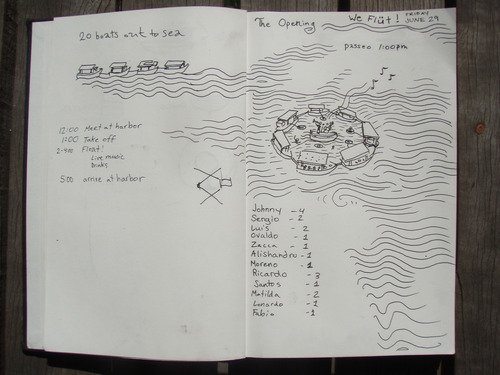 20 boats out to sea
12:00 Meet at harbor
1:00 Take off
2-4:00 Float!
Live music
Drinks
5:00 arrive at harbor
The Opening
We Flüt!
FRIDAY
JUNE 29
paseo 1:00pm
Johnny - 4
Sergio - 2
Luis - 2
Ovaldo - 1
Zacca - 1
Alishandro - 1
Moreno - 1
Ricardo - 3
Santos - 1
Matilda - 2
Lonardo - 2
Fabio - 1